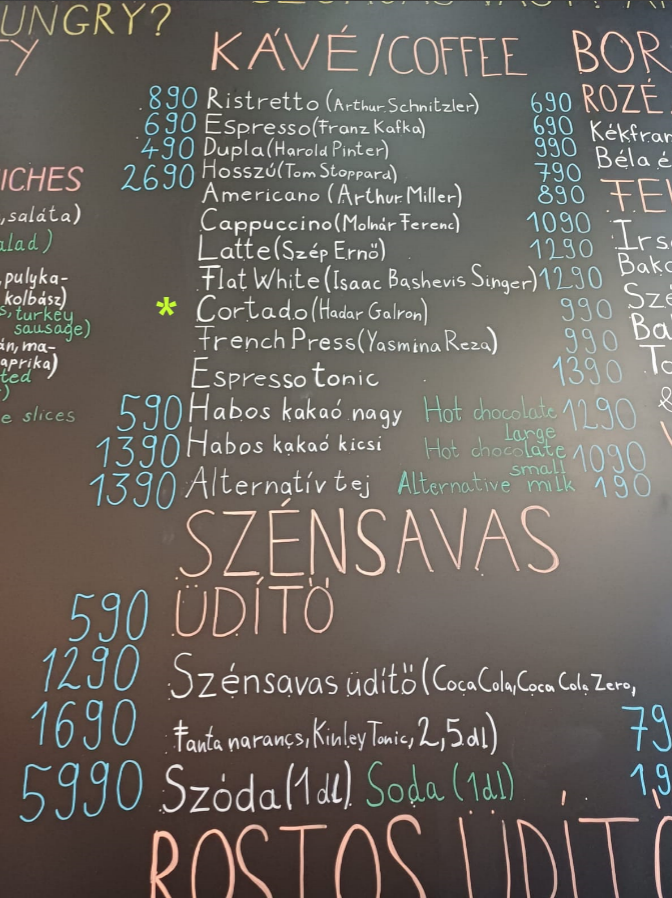 UNGRY?
KÁVÉ/COFFEE
BOR
890 Ristretto (Arthur Schnitzler) 690
690 Espresso (Franz Kafka) 690
490 Dupla (Harold Pinter) 990
2690 Hosszú (Tom Stoppard) 790
Americano (Arthur Miller) 890
Cappuccino (Molnár Ferenc) 1090
Latte (Szép Ernő) 1290
Flat White (Isaac Bashevis Singer) 1290
* Cortado (Hadar Galron) 990
French Press (Yasmina Reza) 990
Espresso tonic 1390
590 Habos kakaó nagy Hot chocolate large 1290
1390 Habos kakaó kicsi Hot chocolate small 1090
1390 Alternatív tej Alternative milk 190
SZÉNSAVAS
590 ÜDÍTŐ
1290
Szénsavas üdítő (Coca Cola, Coca Cola Zero,
1690 Fanta narancs, Kinley Tonic, 2,5 dl) 79
5990 Szóda (1 dl) Soda (1 dl) 19
ROSTOS ÜDÍTŐ
ICHES
, saláta)
alad)
, pulyka-
kolbász)
s, turkey
sausage)
án, ma-
aprika)
ted
)
e slices
ROZÉ
Kékfran
Béla é
FE
Irs
Bako
Szö
Ba
To